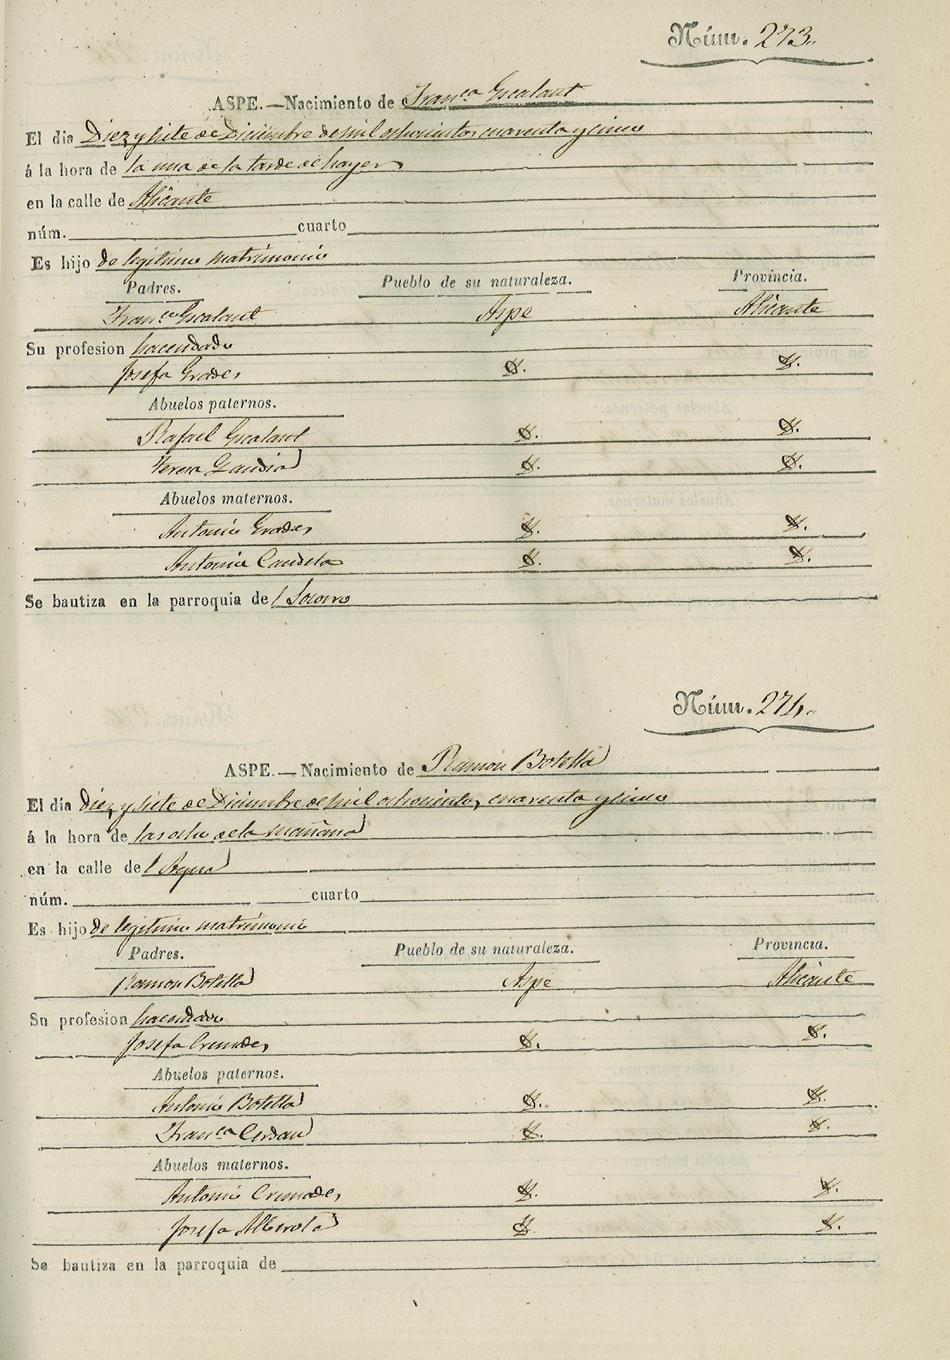 Núm. 273.
ASPE.—Nacimiento de Fran.ca Escalant
El dia Diez y siete de Diciembre de mil ochocientos cuarenta y cinco
á la hora de la una de la tarde de hayer
en la calle de Alicante
núm. cuarto
Es hijo de legitimo matrimonio
Padres. Pueblo de su naturaleza. Provincia.
Fran.co Escalant Aspe Alicante
Su profesion hacendado
Josefa Grades
Abuelos paternos.
Rafael Escalant
Teresa
Abuelos maternos.
Antonio Grades
Antonia Candela
Se bautiza en la parroquia de l Socorro
Núm. 274.
ASPE.—Nacimiento de Ramon Botella
El dia diez y siete de Diciembre de mil ochocientos, cuarenta y cinco
á la hora de las ocho de la mañana
en la calle de l Agua
núm. cuarto
Es hijo de legitimo matrimonio
Padres. Pueblo de su naturaleza. Provincia.
Ramon Botella Aspe Alicante
Su profesion hacendado
Josefa Cremades
Abuelos paternos.
Antonio Botella
Fran.ca Cerdan
Abuelos maternos.
Antonio Cremades
Josefa Alberola
Se bautiza en la parroquia de